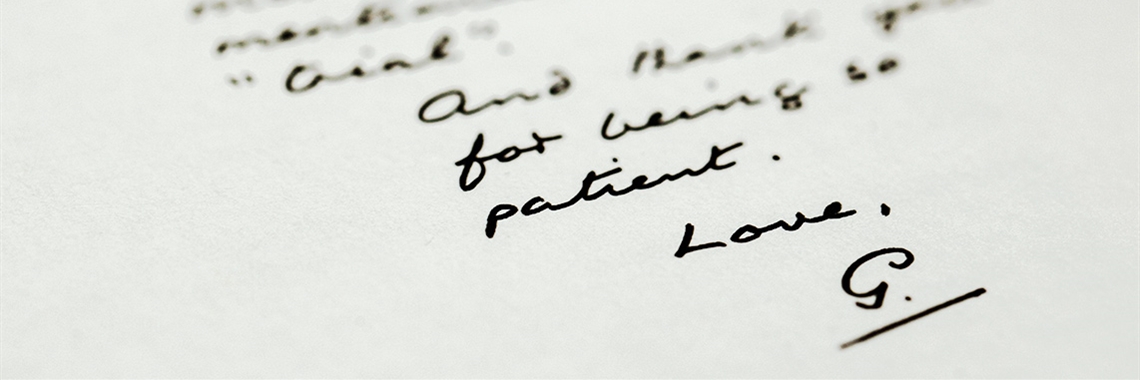 And thank you
for being so
patient.
Love,
G.